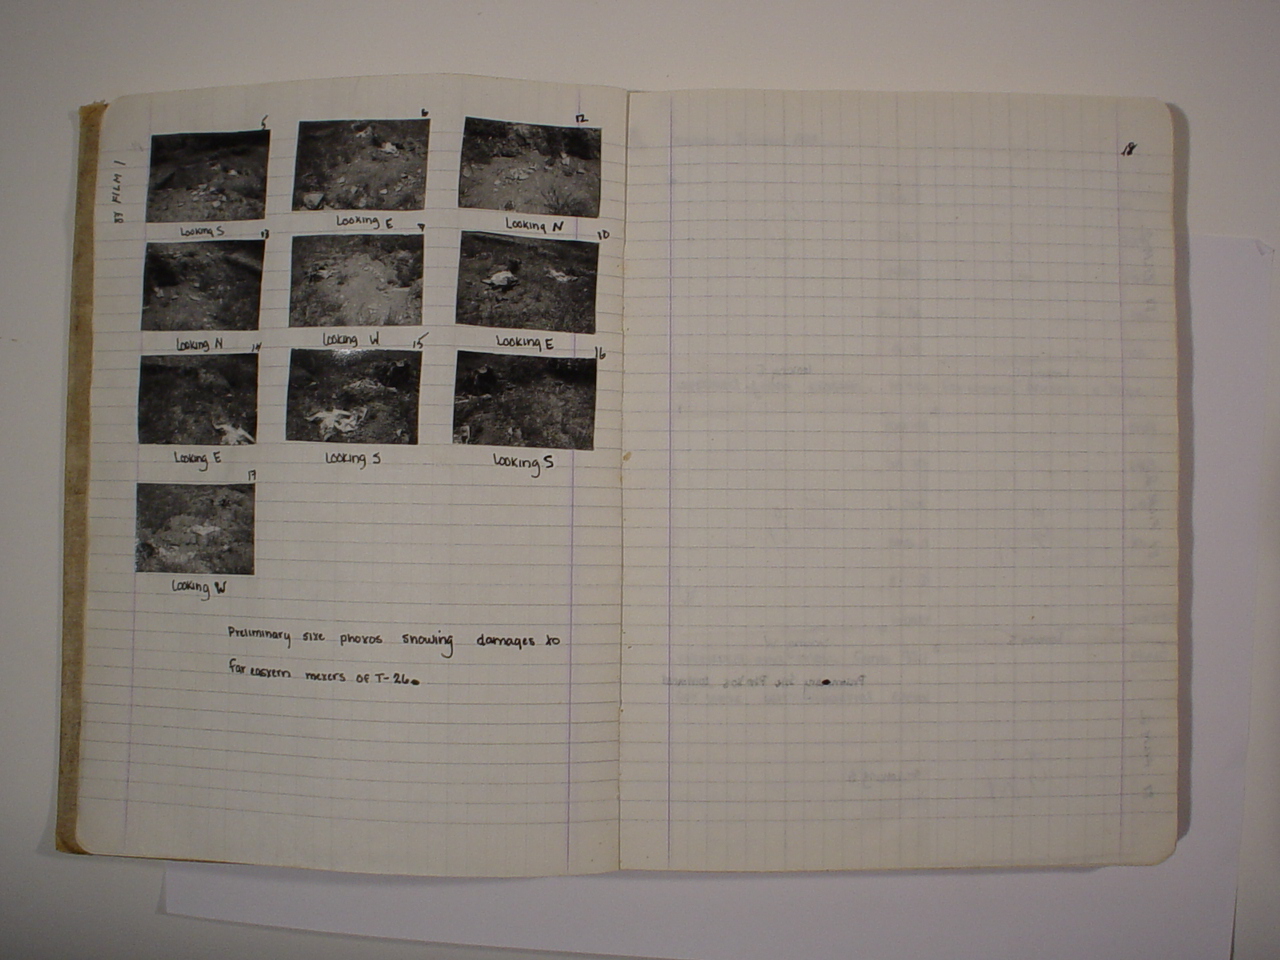 BY FILM 1
5 6 12
Looking S Looking E Looking N
13 9 10
Looking N Looking W Looking E
14 15 16
Looking E Looking S Looking S
17
Looking W
Preliminary site photos showing damages to
far eastern meters of T-26.
18